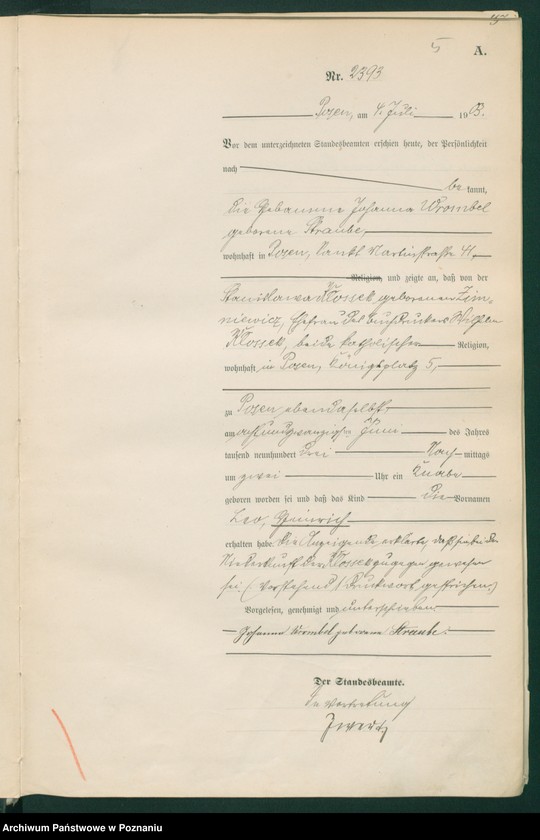 5 A.
Nr. 2393
Posen, am 4. Juli 1903.
Vor dem unterzeichneten Standesbeamten erschien heute, der Persönlichkeit
nach
be kannt,
die Hebamme Johanna Wrombel
geborene Straube,
wohnhaft in Posen, Sankt Martinstraße 41,
Religion, und zeigte an, daß von der
Stanislawa Klossek geborenen Zim-
niewicz, Ehefrau des Buchdruckers Wilhelm
Klossek, beide katholischer Religion,
wohnhaft in Posen, Königsplatz 5,
zu Posen ebendaselbst
am achtundzwanzigsten Juni des Jahres
tausend neunhundert drei Nach mittags
um zwei Uhr ein Knabe
geboren worden sei und daß das Kind die Vornamen
Leo, Heinrich
erhalten habe. Die Anzeigende erklärte, daß sie bei der
Niederkunft der Klossek zugegen gewesen
sei. (Vorstehend 1 Druckwort gestrichen.)
Vorgelesen, genehmigt und unterschrieben
Johanna Wrombel geborene Straube.
Der Standesbeamte.
In Vertretung
Archiwum Państwowe w Poznaniu